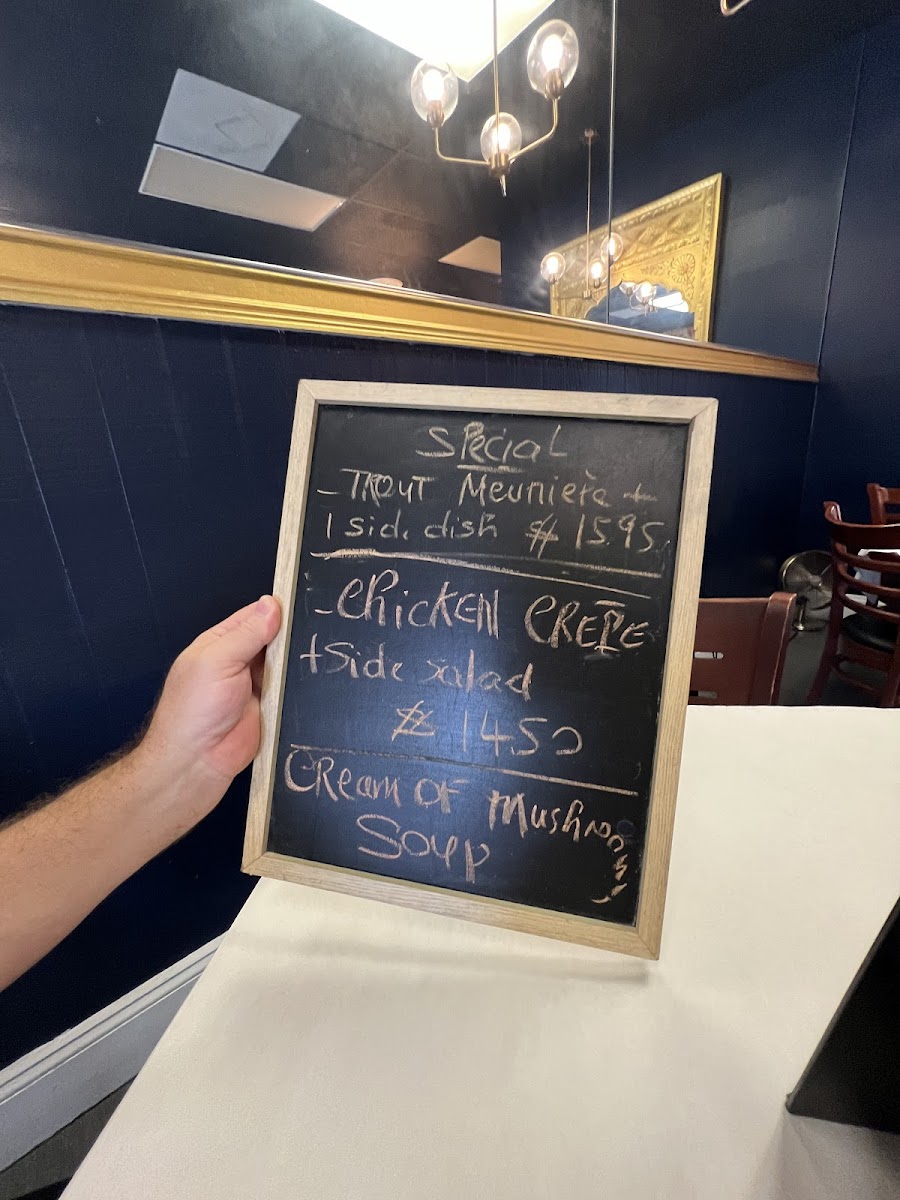 Special
- TROUT Meuniere -
1 side dish $ 15.95
- CHICKEN CREPE
+ Side salad
$ 14.50
CReam OF Mushrooms
Soup